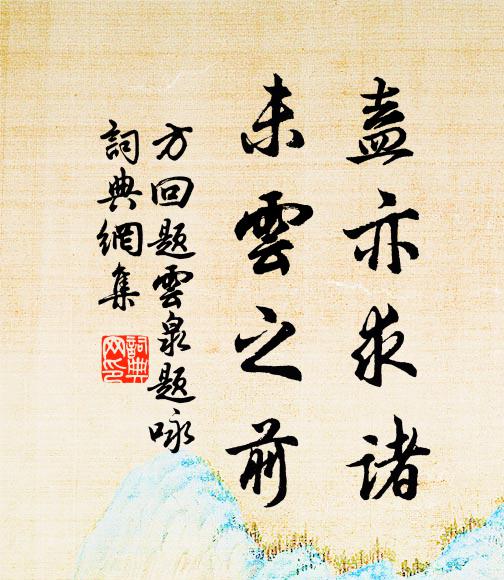 盍亦求诸
未雲之前
方回题雲泉题咏
詞典網集
詞典网印